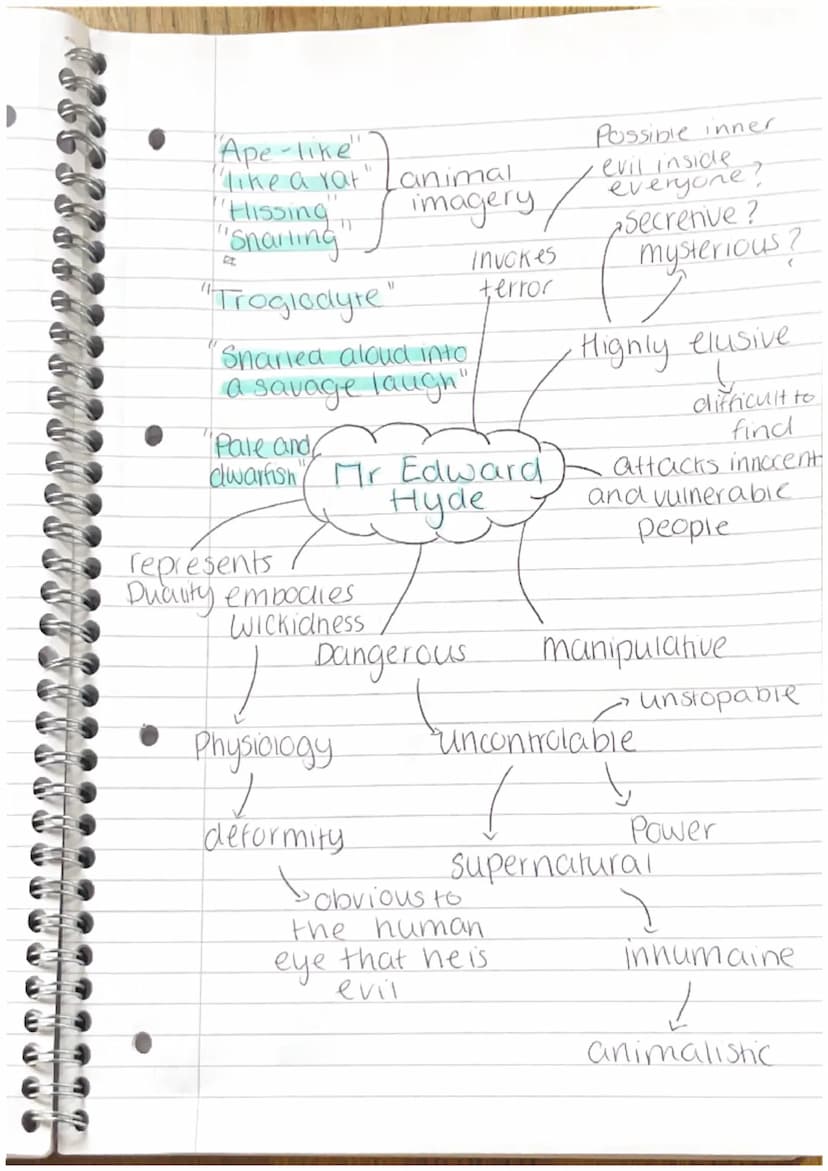 "Ape-like"
"like a rat"
"Hissing"
"Snarling"
animal
imagery
"Troglodyte"
"Snarled aloud into
a savage laugh"
"Pale and
dwarfish"
Possible inner
evil inside
everyone?
invokes
terror
secretive?
mysterious?
Highly elusive
difficult to
find
Mr Edward
Hyde
attacks innocent
and vulnerable
people
represents
Duality
embodies
wickidness
Physiology
deformity
obvious to
the human
eye that he is
evil
Dangerous
uncontrolable
unstopable
Power
supernatural
inhumaine
animalistic
manipulative